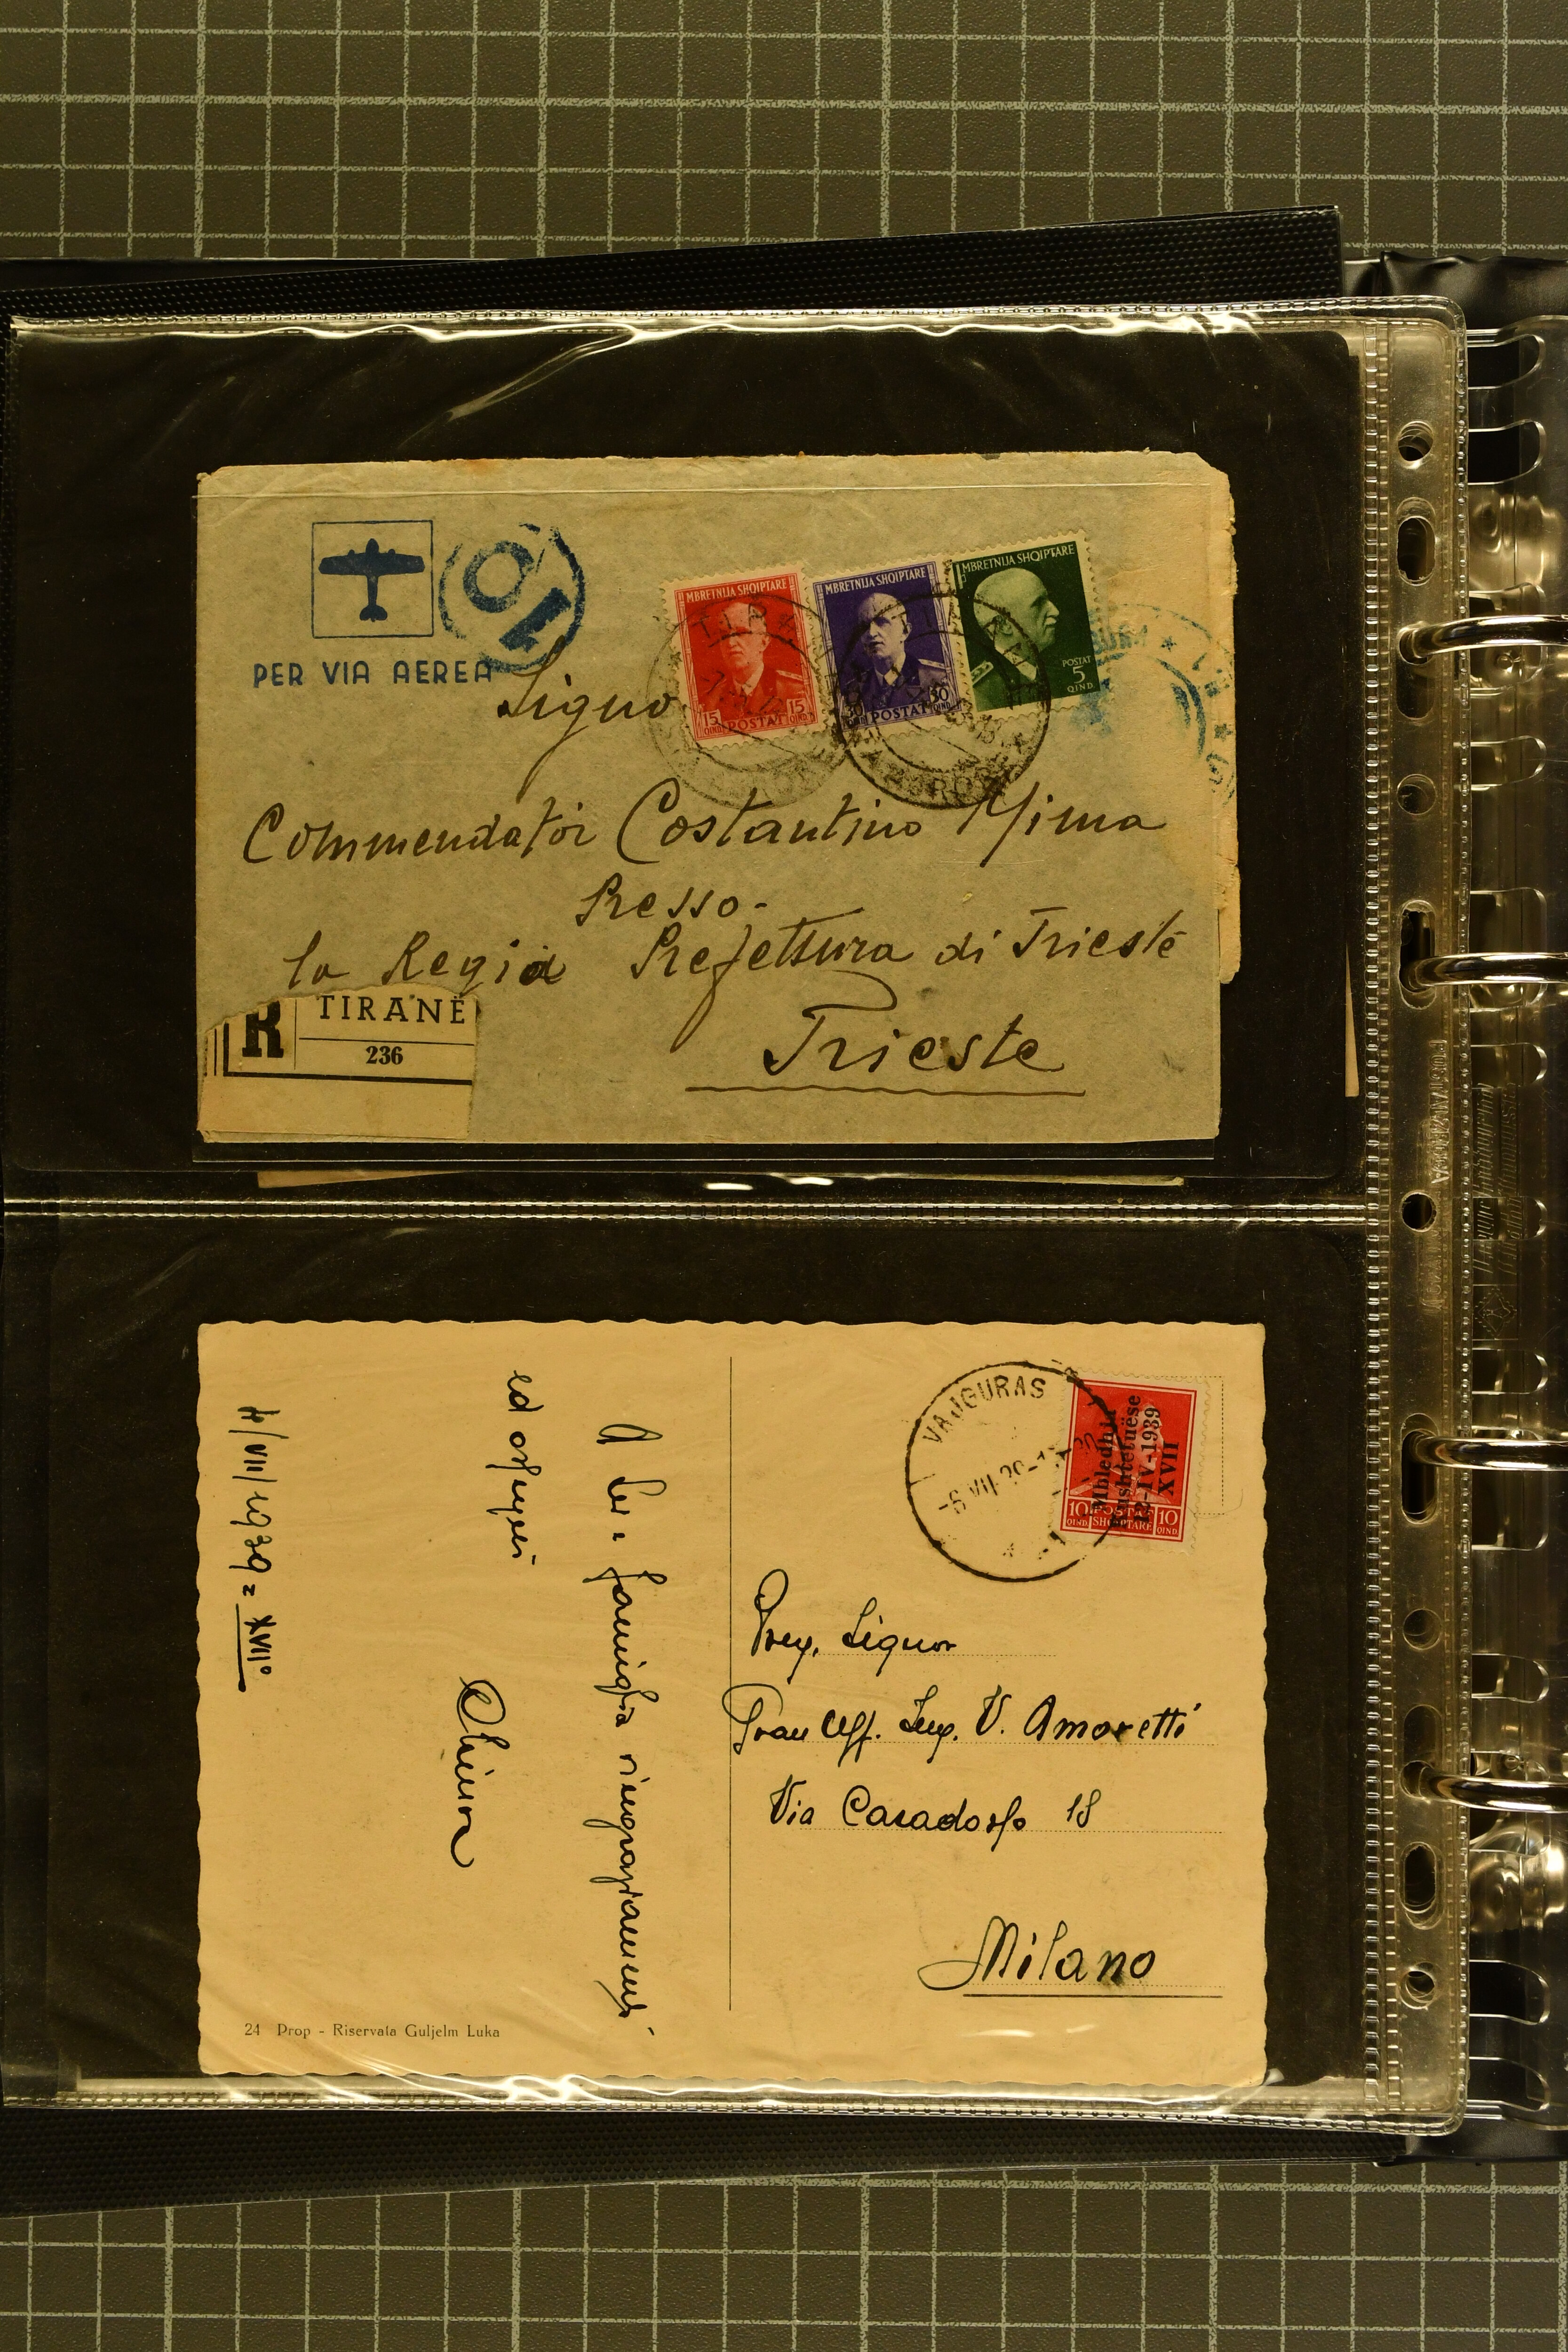 PER VIA AEREA
MBRETNIJA SHQIPTARE
15 QIND POSTAT 15 QIND
MBRETNIJA SHQIPTARE
30 QIND POSTAT 30 QIND
MBRETNIJA SHQIPTARE
POSTAT
5
QIND
Signor
Commendator Costantino Mima
Presso-
la Regia Prefettura di Trieste
Trieste
R TIRANË
236
VAJGURAS
Mbledhja
Kushtetuëse
12-IV-1939
XVII
10 QIND POSTAT SHQIPTARE 10 QIND
4/VII/1939 = XVII°
ed ossequi
A Lei e famiglia ringraziamenti
Preg. Signor
Gran Uff. Ing. V. Amoretti
Via Caradosso 18
Milano
24 Prop - Riservata Guljelm Luka